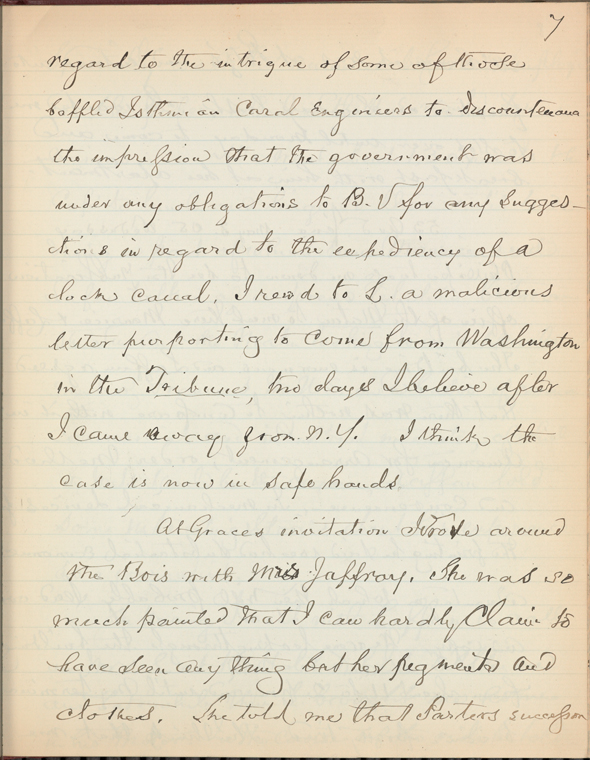 7
regard to the intrigue of some of those
baffled Isthmian Canal Engineers to discountenance
the impression that the government was
under any obligations to B. V for any Sugges-
tions in regard to the expediency of a
lock canal. I read to L. a malicious
letter purporting to come from Washington
in the Tribune, two days I believe after
I came away from N.Y. I think the
case is now in safe hands.
At Graces invitation I drove around
the Bois with Mrs Jaffray. She was so
much painted that I can hardly Claim to
have seen any thing but her pigments and
clothes. She told me that Porters succession